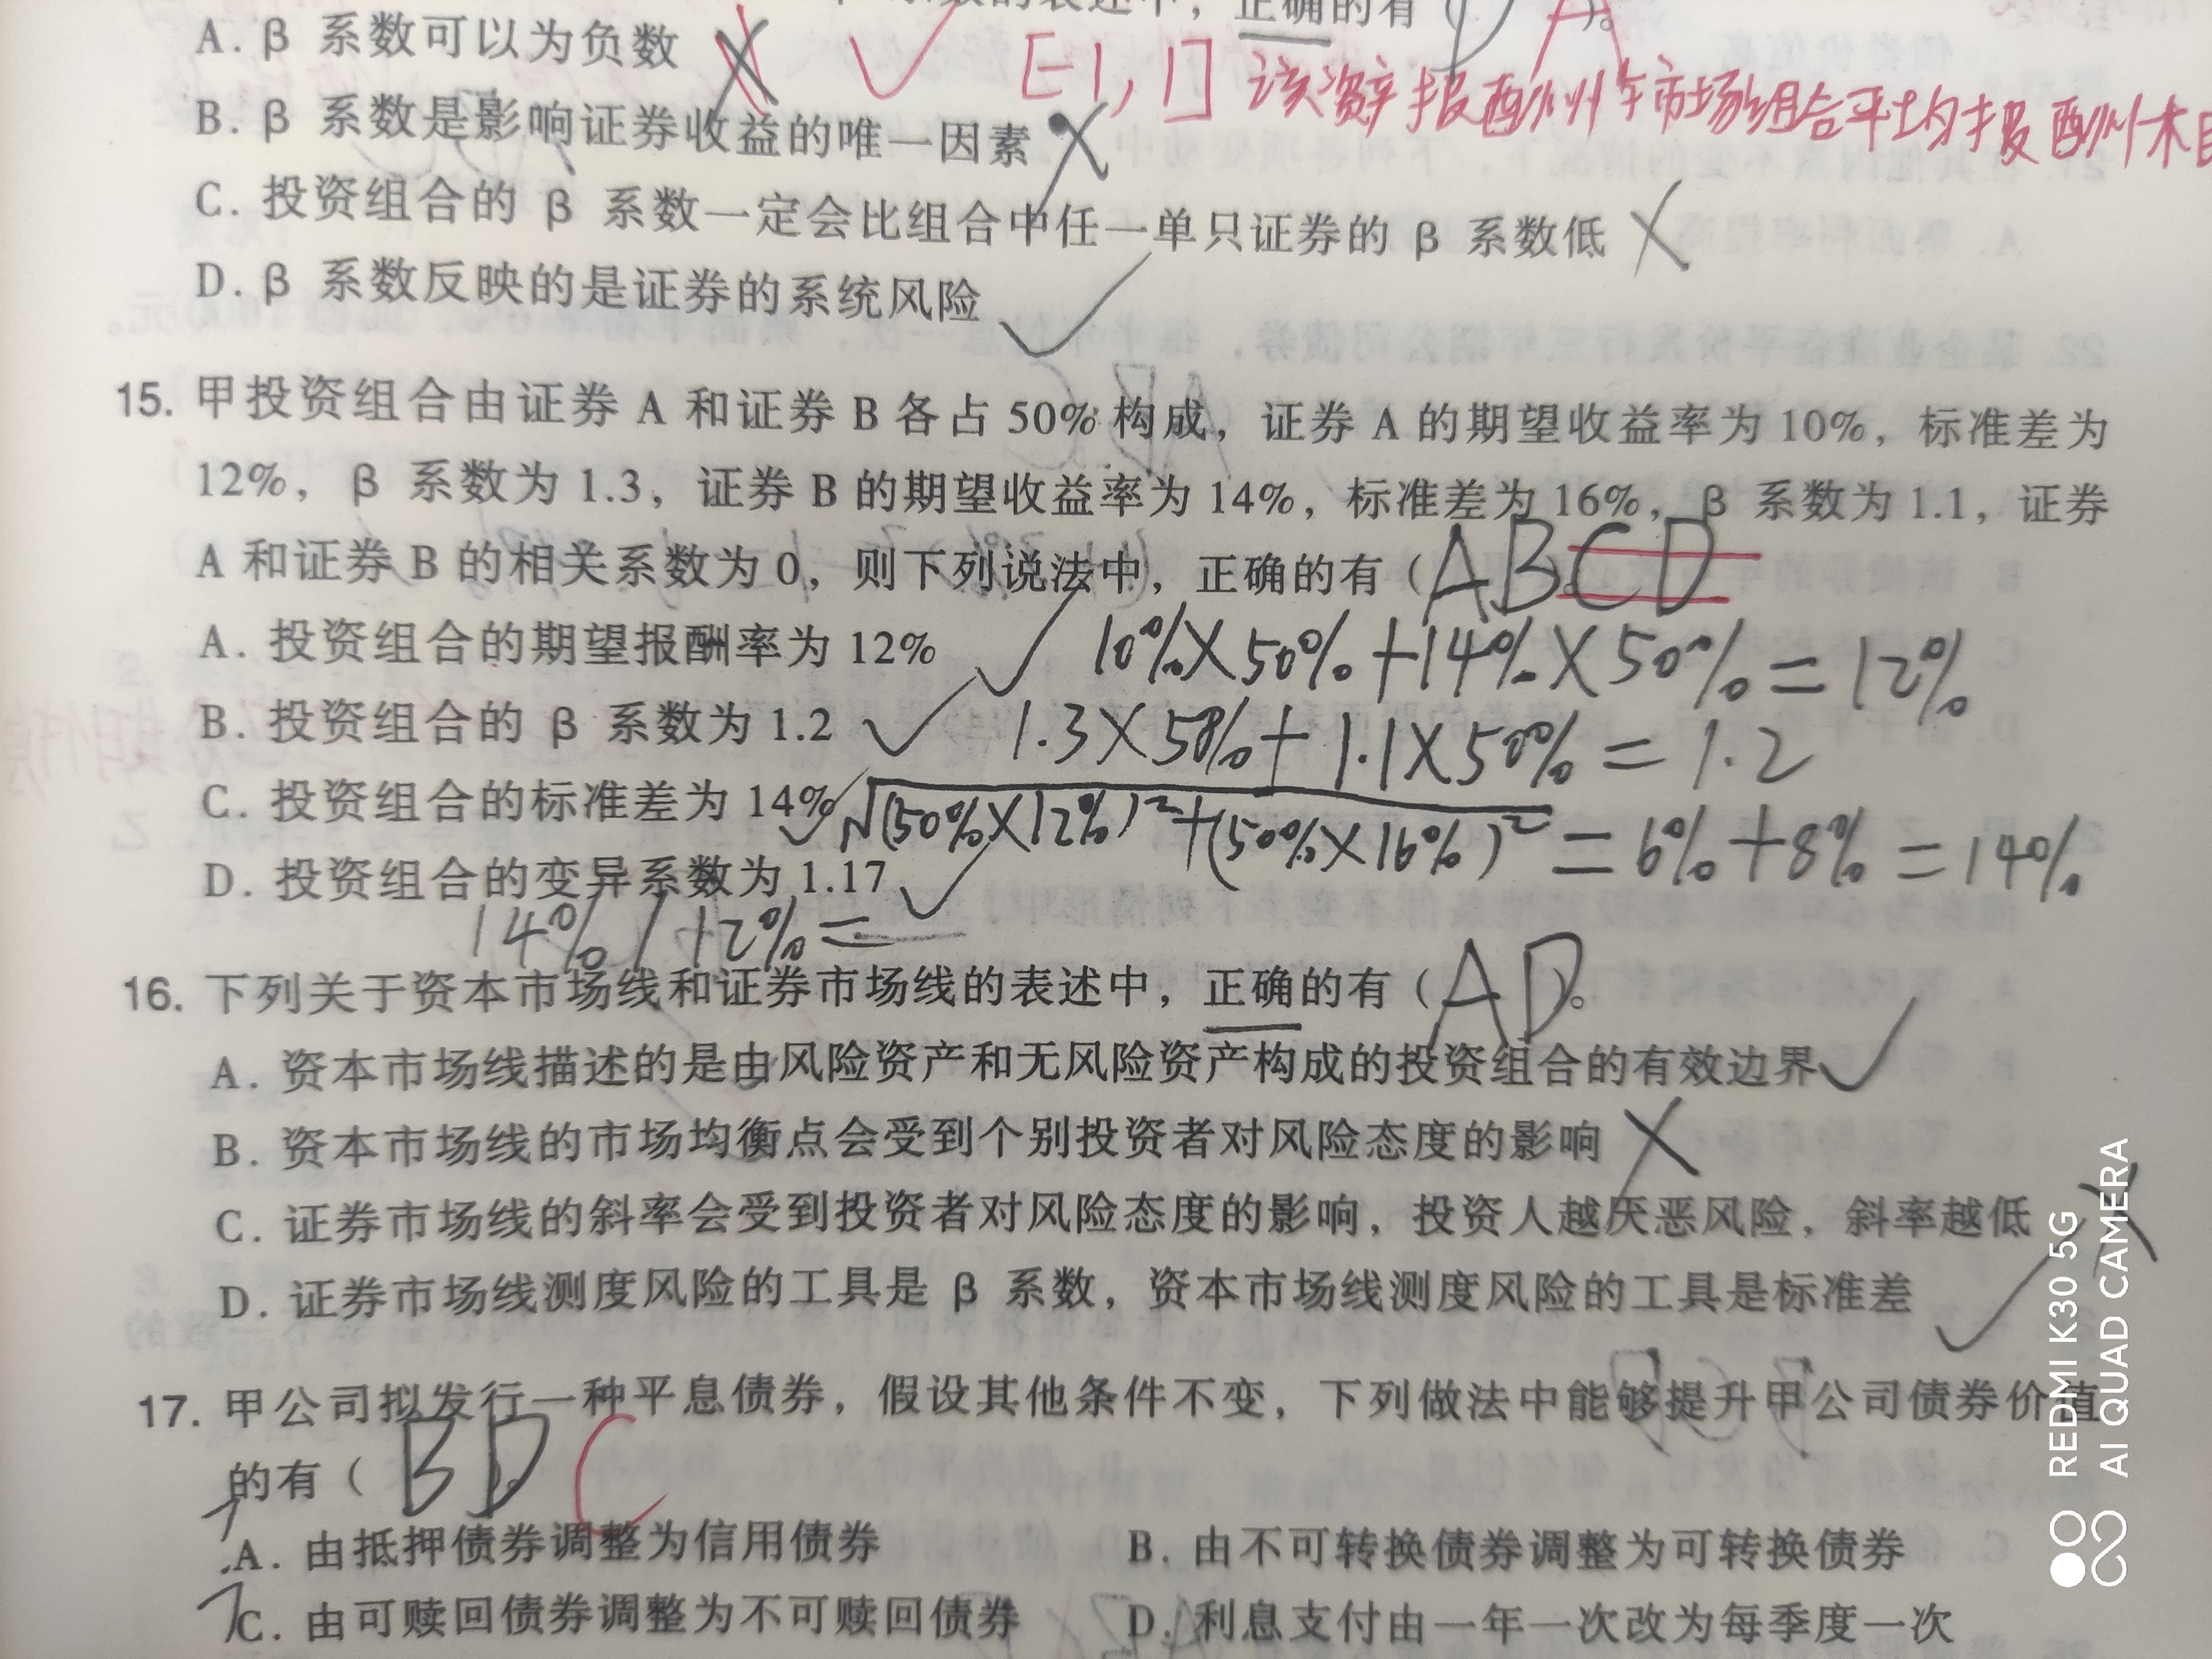 系数的表述中，正确的有（D A）。
A. β 系数可以为负数
[-1, 1] 该资产报酬率与市场组合平均报酬率
B. β 系数是影响证券收益的唯一因素
C. 投资组合的 β 系数一定会比组合中任一单只证券的 β 系数低
D. β 系数反映的是证券的系统风险
15. 甲投资组合由证券 A 和证券 B 各占 50% 构成，证券 A 的期望收益率为 10%，标准差为
12%，β 系数为 1.3，证券 B 的期望收益率为 14%，标准差为 16%，β 系数为 1.1，证券
A 和证券 B 的相关系数为 0，则下列说法中，正确的有（ABCD
A. 投资组合的期望报酬率为 12%
10%×50%+14%×50%=12%
B. 投资组合的 β 系数为 1.2
1.3×50%+1.1×50%=1.2
C. 投资组合的标准差为 14%
√(50%×12%)²+(50%×16%)²=6%+8%=14%
D. 投资组合的变异系数为 1.17
14%/12%=
16. 下列关于资本市场线和证券市场线的表述中，正确的有（AD。
A. 资本市场线描述的是由风险资产和无风险资产构成的投资组合的有效边界
B. 资本市场线的市场均衡点会受到个别投资者对风险态度的影响
C. 证券市场线的斜率会受到投资者对风险态度的影响，投资人越厌恶风险，斜率越低
D. 证券市场线测度风险的工具是 β 系数，资本市场线测度风险的工具是标准差
17. 甲公司拟发行一种平息债券，假设其他条件不变，下列做法中能够提升甲公司债券价值
的有（BD C
A. 由抵押债券调整为信用债券
B. 由不可转换债券调整为可转换债券
C. 由可赎回债券调整为不可赎回债券
D. 利息支付由一年一次改为每季度一次
REDMI K30 5G
AI QUAD CAMERA